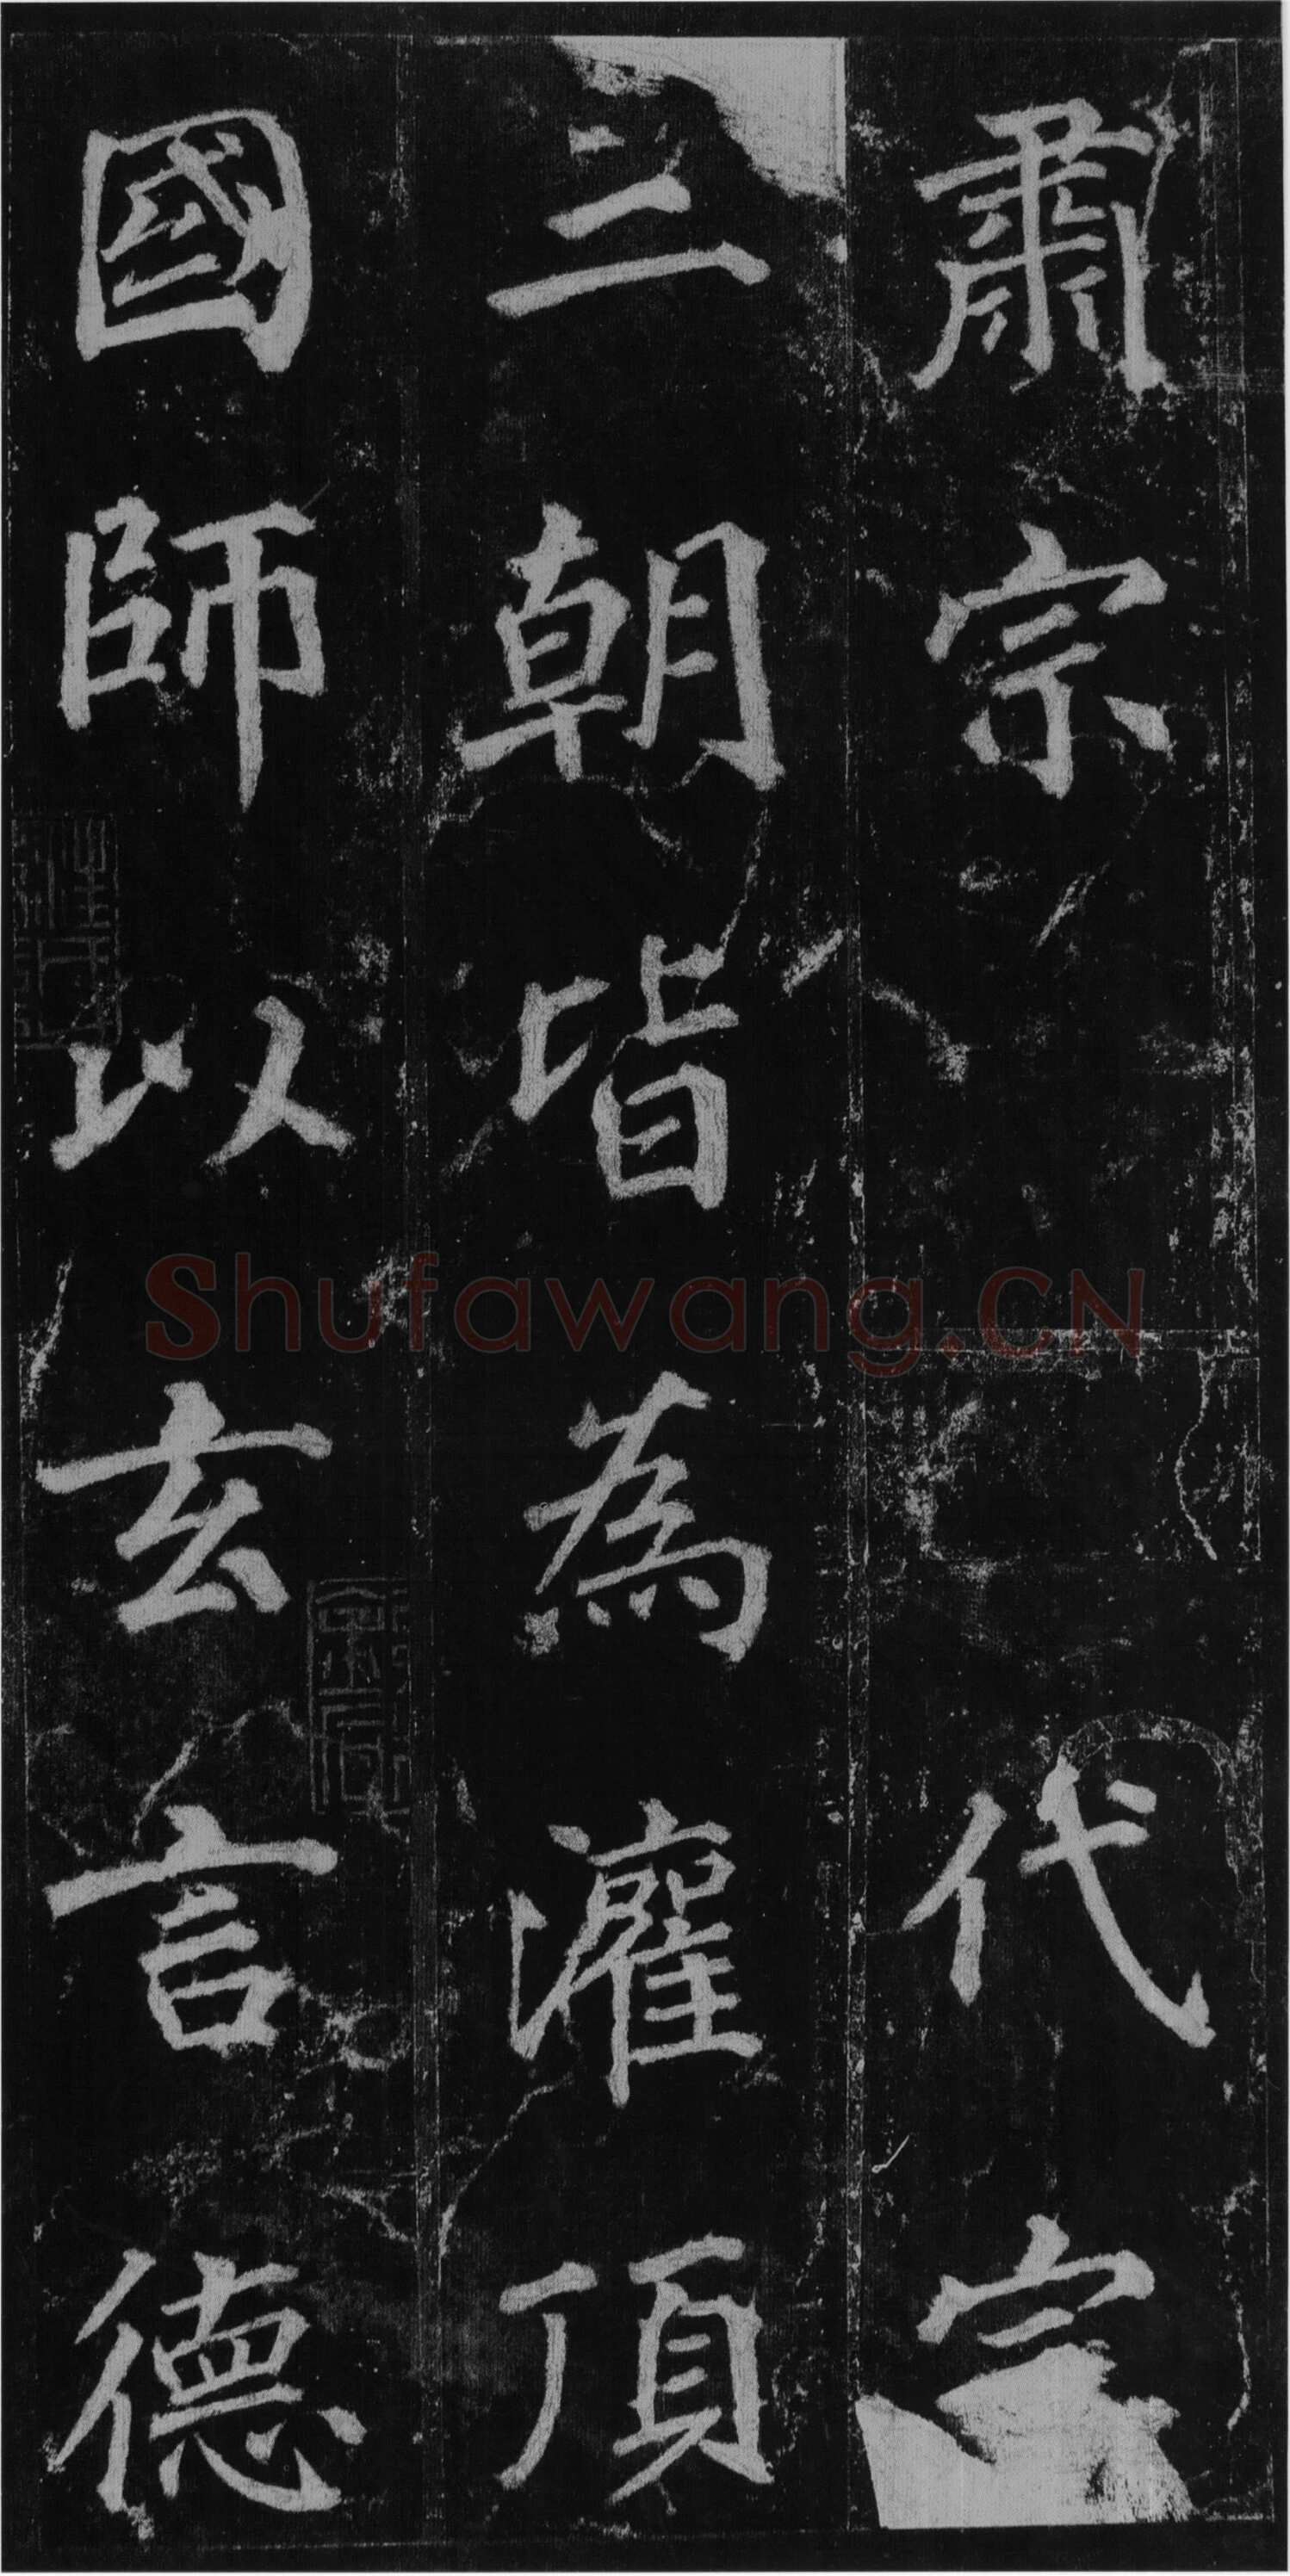 肅宗代宗
三朝皆為灌頂
國師以玄言德
Shufawang.CN